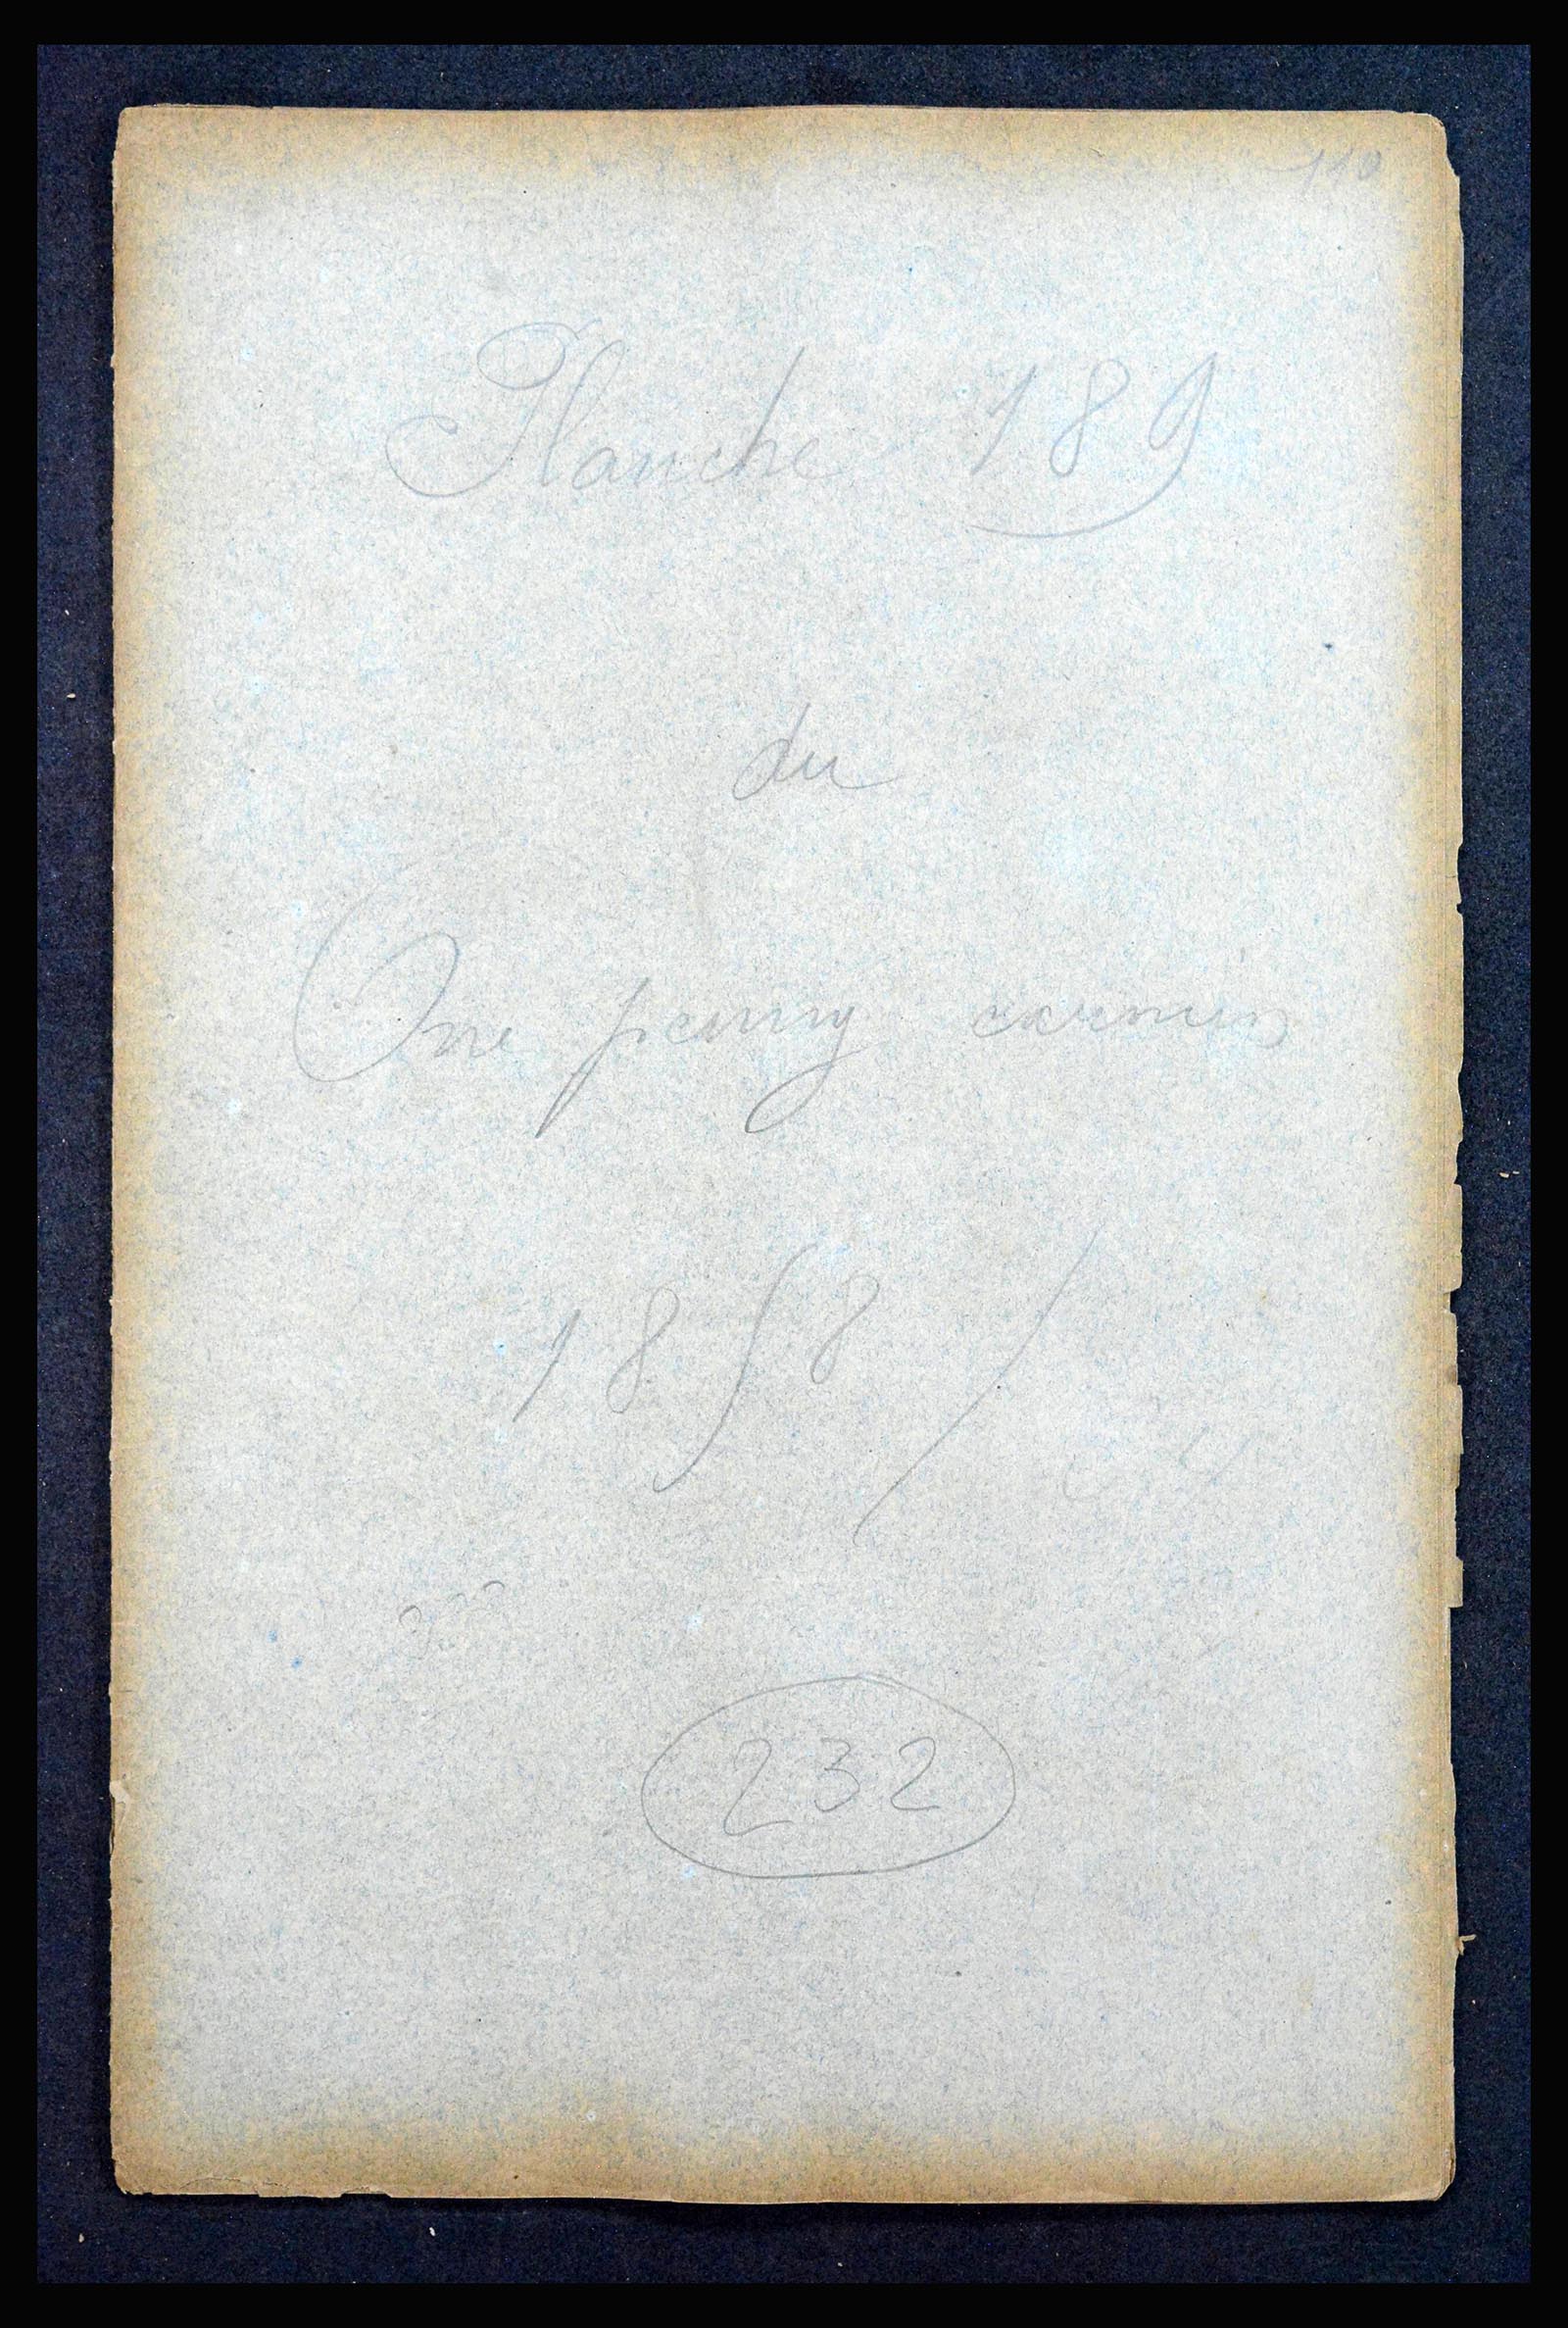 110
Planche 189
du
One penny carmin
1858
232